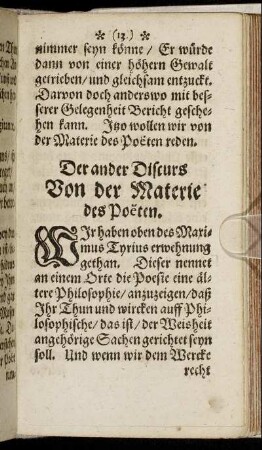 * (13.) *
nimmer seyn könne/ Er würde
dann von einer höhern Gewalt
getrieben/ und gleichsam entzuckt.
Darvon doch anderswo mit bes-
serer Gelegenheit Bericht gesche-
hen kann. Itzo wollen wir von
der Materie des Poëten reden.
Der ander Discurs
Von der Materie
des Poëten.
WIr haben oben des Maxi-
mus Tyrius erwehnung
gethan. Dieser nennet
an einem Orte die Poesie eine äl-
tere Philosophie/ anzuzeigen/ daß
Ihr Thun und wircken auff Phi-
losophische/ das ist/ der Weisheit
angehörige Sachen gerichtet seyn
soll. Und wenn wir dem Wercke
recht